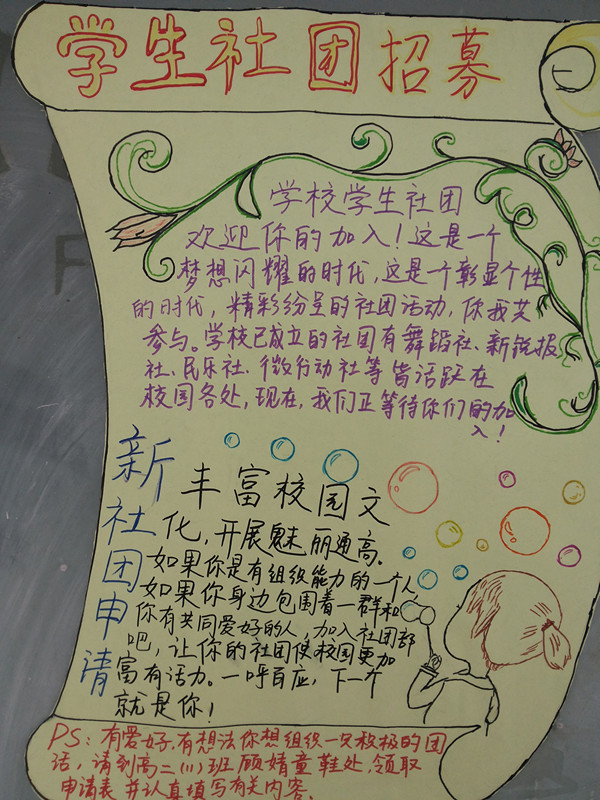 学生社团招募
学校学生社团
欢迎你的加入！这是一个
梦想闪耀的时代，这是一个彰显个性
的时代，精彩纷呈的社团活动，你我共
参与。学校已成立的社团有舞蹈社、新锐报
社、民乐社、微行动社等皆活跃在
校园各处，现在，我们正等待你们的加
入！
新社团申请
丰富校园文
化，开展魅丽通高。
如果你是有组织能力的一个人
如果你身边包围着一群和
你有共同爱好的人，加入社团部
吧，让你的社团使校园更加
富有活力。一呼百应，下一个
就是你！
PS：有爱好，有想法你想组织一次积极的团
活，请到高二(11)班顾婧童鞋处，领取
申请表并认真填写有关内容。